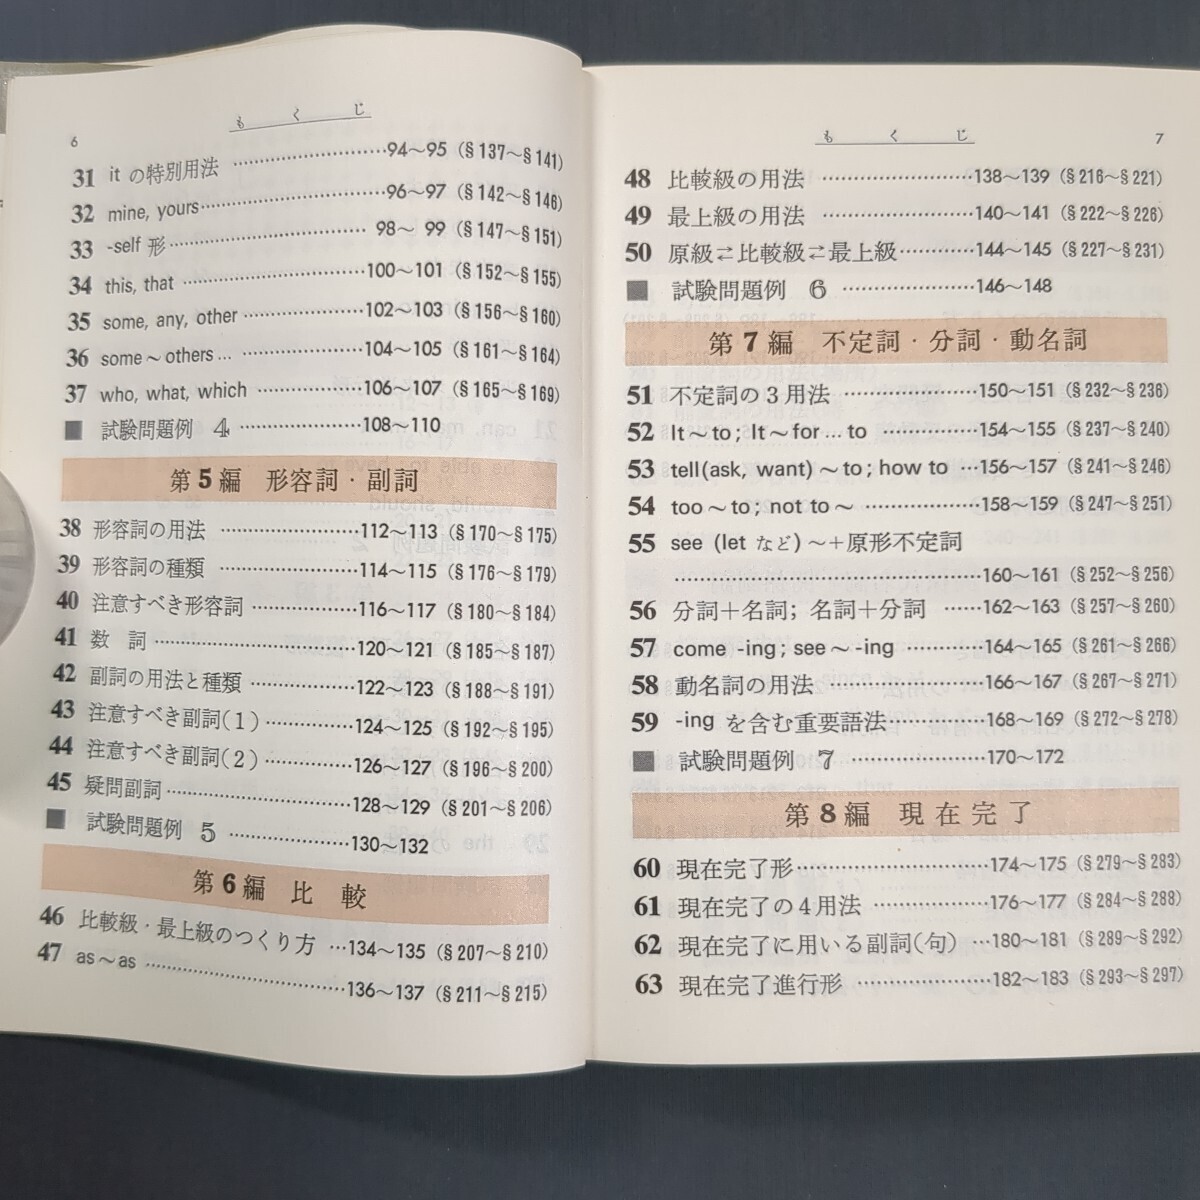 もくじ
6
31 it の特別用法 ……………94～95 (§137～§141)
32 mine, yours……………96～97 (§142～§146)
33 -self 形……………98～ 99 (§147～§151)
34 this, that ……………100～101 (§152～§155)
35 some, any, other ……………102～103 (§156～§160)
36 some～others … ……………104～105 (§161～§164)
37 who, what, which ……………106～107 (§165～§169)
■ 試験問題例 4 ……………108～110
第5編 形容詞・副詞
38 形容詞の用法 ……………112～113 (§170～§175)
39 形容詞の種類 ……………114～115 (§176～§179)
40 注意すべき形容詞 ……………116～117 (§180～§184)
41 数 詞 ……………120～121 (§185～§187)
42 副詞の用法と種類 ……………122～123 (§188～§191)
43 注意すべき副詞(1) ……………124～125 (§192～§195)
44 注意すべき副詞(2) ……………126～127 (§196～§200)
45 疑問副詞 ……………128～129 (§201～§206)
■ 試験問題例 5 ……………130～132
第6編 比 較
46 比較級・最上級のつくり方 …134～135 (§207～§210)
47 as～as ……………136～137 (§211～§215)
もくじ
7
48 比較級の用法 ……………138～139 (§216～§221)
49 最上級の用法 ……………140～141 (§222～§226)
50 原級⇄比較級⇄最上級…………144～145 (§227～§231)
■ 試験問題例 6 ……………146～148
第7編 不定詞・分詞・動名詞
51 不定詞の3用法 ……………150～151 (§232～§236)
52 It～to; It～for … to ……………154～155 (§237～§240)
53 tell(ask, want)～to; how to …156～157 (§241～§246)
54 too～to; not to～ ……………158～159 (§247～§251)
55 see (let など)～+原形不定詞
……………160～161 (§252～§256)
56 分詞+名詞; 名詞+分詞 ……162～163 (§257～§260)
57 come -ing; see～ -ing …………164～165 (§261～§266)
58 動名詞の用法 ……………166～167 (§267～§271)
59 -ing を含む重要語法……………168～169 (§272～§278)
■ 試験問題例 7 ……………170～172
第8編 現在完了
60 現在完了形……………174～175 (§279～§283)
61 現在完了の4用法 ……………176～177 (§284～§288)
62 現在完了に用いる副詞(句) …180～181 (§289～§292)
63 現在完了進行形 ……………182～183 (§293～§297)